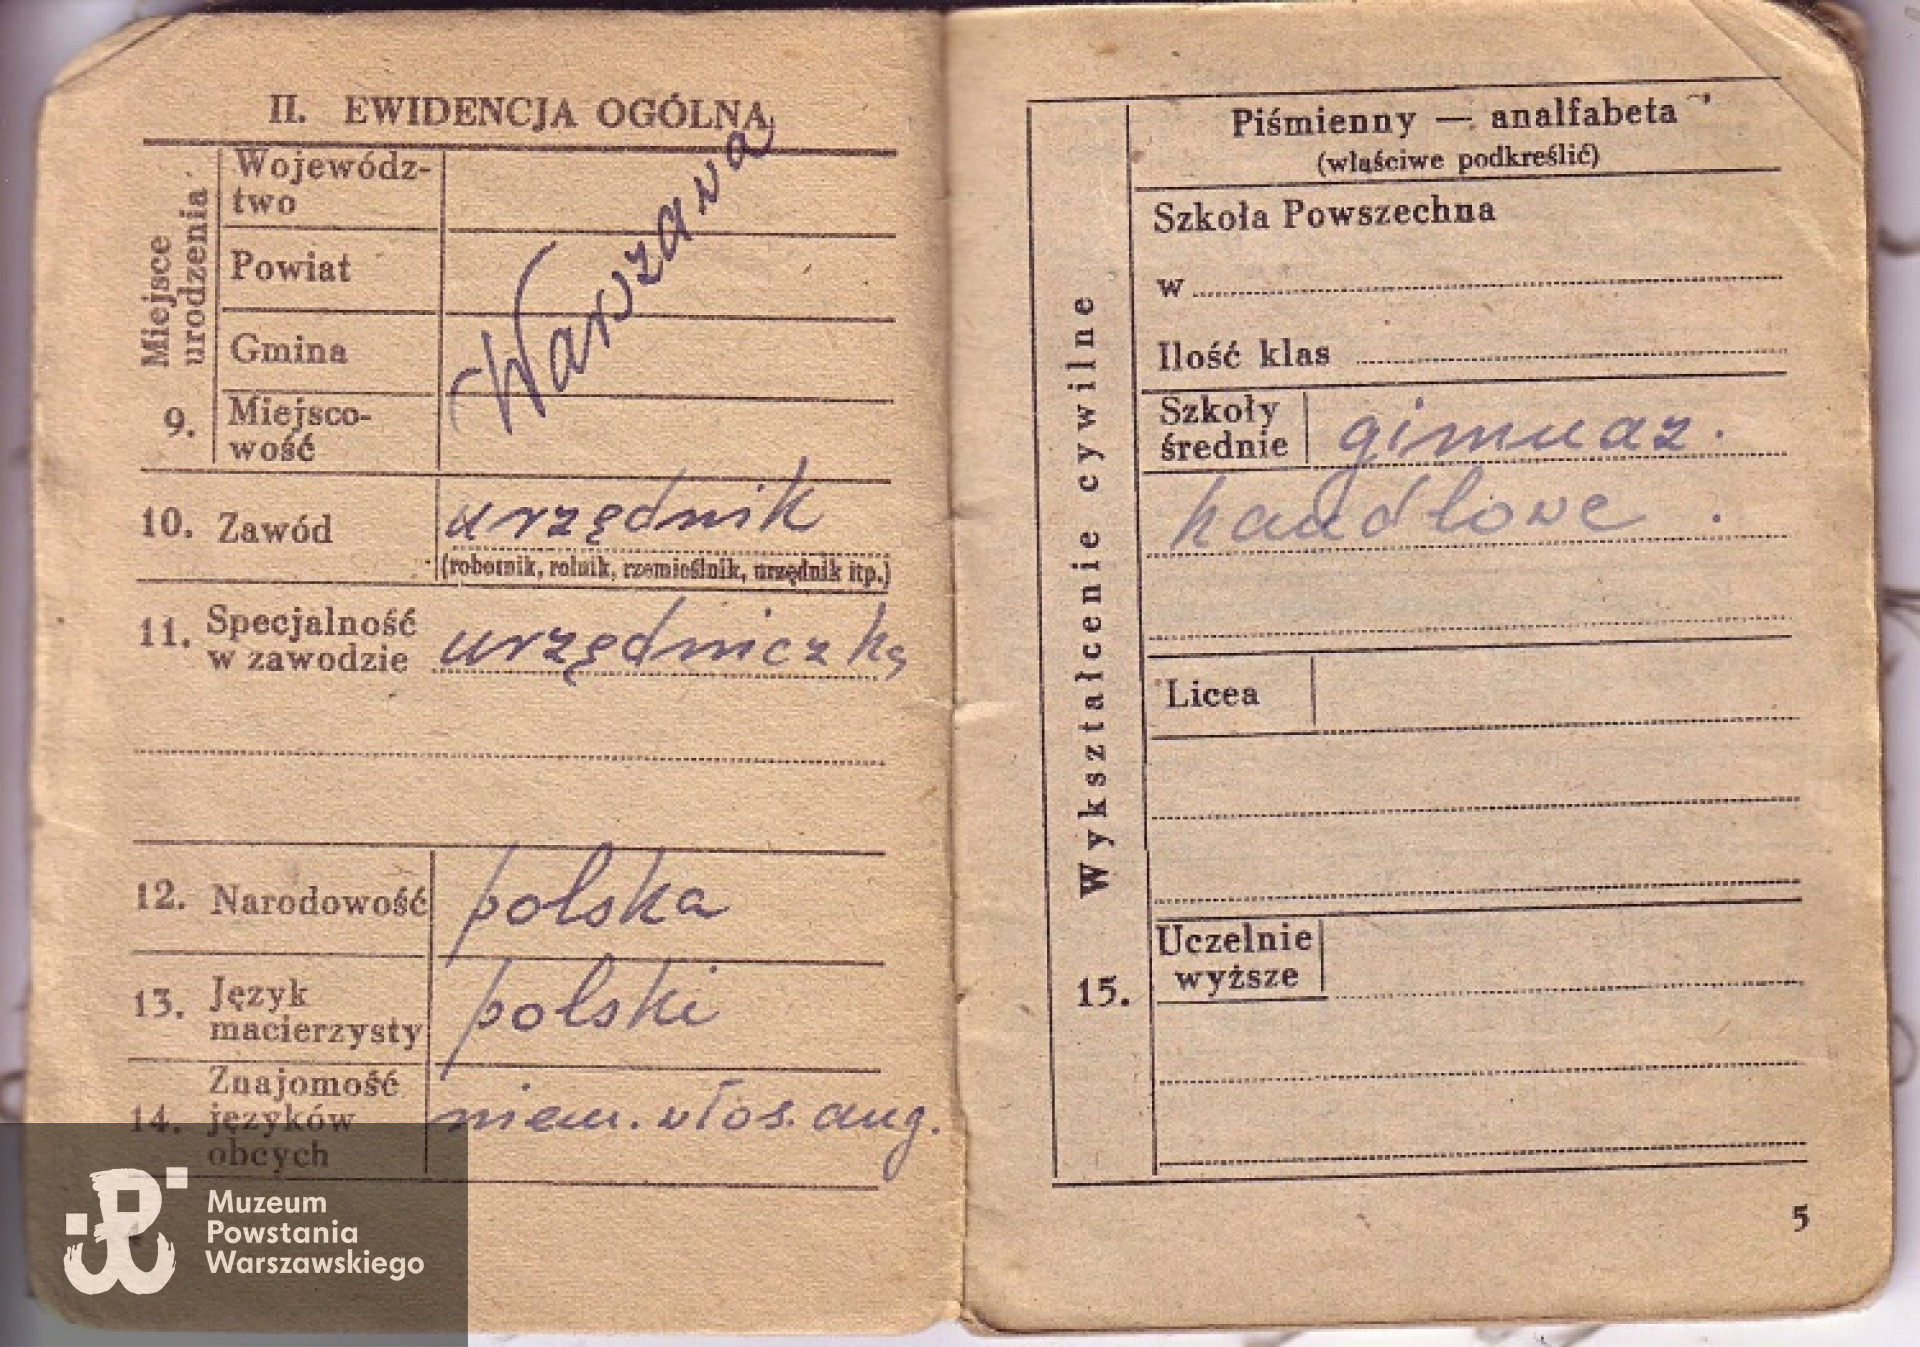 II. EWIDENCJA OGÓLNA
Miejsce
urodzenia
9.
Wojewódz-
two
Powiat
Gmina
Miejsco-
wość
Warszawa
10. Zawód urzędnik
(robotnik, rolnik, rzemieślnik, urzędnik itp.)
11. Specjalność
w zawodzie urzędniczką
12. Narodowość polska
13. Język
macierzysty polski
14. Znajomość
języków
obcych niem. włos. ang.
Muzeum
Powstania
Warszawskiego
Wykształcenie cywilne
15.
Piśmienny — analfabeta
(właściwe podkreślić)
Szkoła Powszechna
w
Ilość klas
Szkoły
średnie gimnaz.
handlowe.
Licea
Uczelnie
wyższe
5